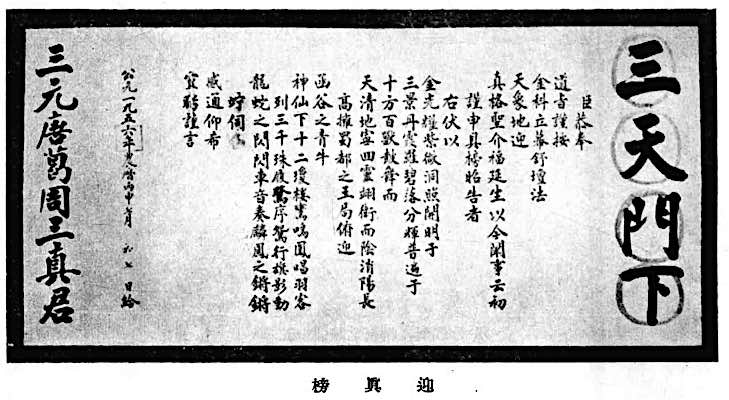 三天門下
臣恭奉
道旨謹按
金科立幕舒壇法
天象地迎
真格聖介福延生以今闌事云初
謹申具榜昭告者
右伏以
金光耀紫微洞照開明于
三景丹霞麗碧落分輝普遍于
十方百獸鼓舞而
天清地寧四靈翊衛而陰消陽長
高擁蜀都之玉局俯迎
函谷之青牛
神仙下十二瓊樓鸞鳴鳳唱羽客
列三千珠履鷺序鴛行旗影動
龍蛇之閃閃車音奏麟鳳之鏘鏘
竚伺
感通仰希
宣聆謹言
公元一九五六年曆丙申七月初七日給
三元唐葛周三真君
迎眞榜